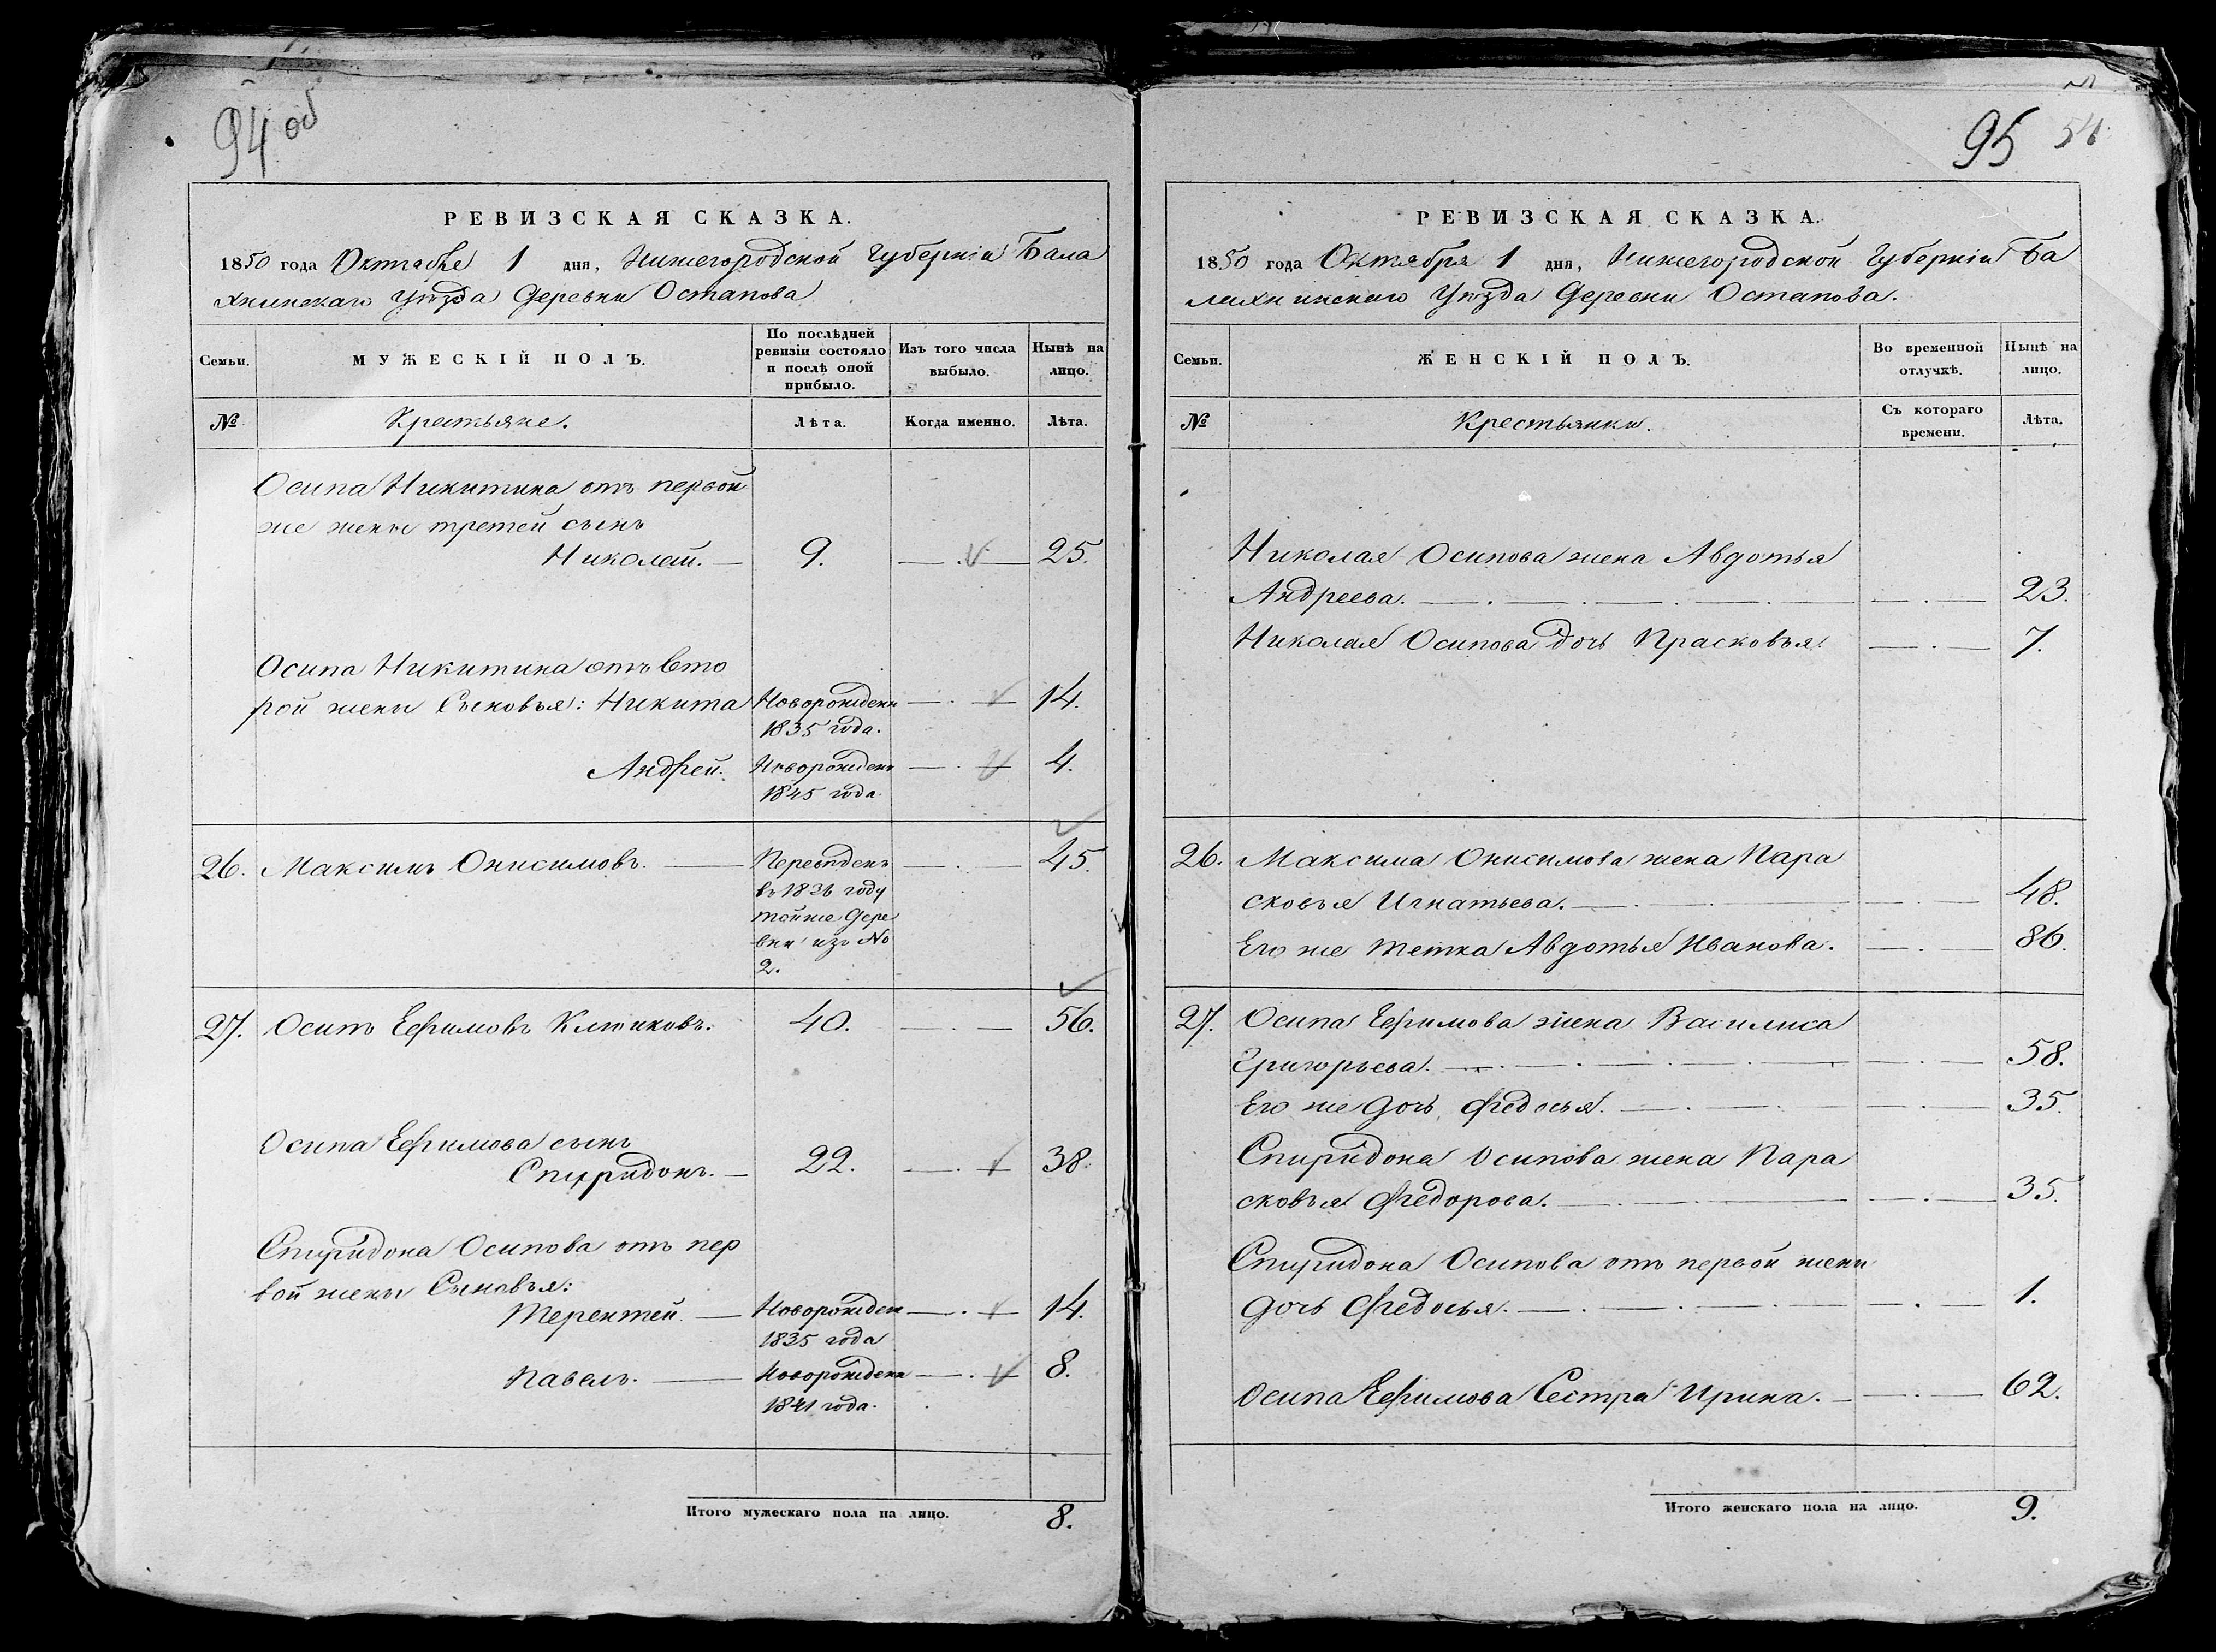 94 об
РЕВИЗСКАЯ СКАЗКА.
1850 года Октября 1 дня, Нижегородской Губерніи Бала
хнинскаго Уѣзда Деревни Остапова
Семьи.
МУЖЕСКІЙ ПОЛЪ.
По послѣдней ревизіи состояло и послѣ оной прибыло.
Изъ того числа выбыло.
Нынѣ на лицо.
№
Крестьяне.
Лѣта.
Когда именно.
Лѣта.
Осипа Никитина отъ первой
же жены третей сынъ
Николай. — 9. — . — 25.
Осипа Никитина отъ вто
рой жены Сыновья: Никита Новорожденъ — . — 14.
1835 года.
Андрей. Новорожденъ — . — 4.
1845 года
26. Максимъ Онисимовъ. — Переведенъ — . — 45.
въ 1836 году
тойже Дере
вни изъ №
2.
27. Осипъ Ефимовъ Клюиковъ. 40. — . — 56.
Осипа Ефимова сынъ
Спиридонъ. — 22. — . — 38.
Спиридона Осипова отъ пер
вой жены Сыновья:
Терентей. — Новорожден — . — 14.
1835 года
Павелъ. — Новорожденъ — . — 8.
1841 года.
Итого мужескаго пола на лицо. 8.
95 54
РЕВИЗСКАЯ СКАЗКА.
1850 года Октября 1 дня, Нижегородской Губерніи Ба
лахнинскаго Уѣзда Деревни Остапова.
Семьи.
ЖЕНСКІЙ ПОЛЪ.
Во временной отлучкѣ.
Нынѣ на лицо.
№
Крестьянки.
Съ котораго времени.
Лѣта.
Николая Осипова жена Авдотья
Андреева. — . — . — . — — . — 23.
Николая Осипова дочь Прасковья. — . — 7.
26. Максима Онисимова жена Пара
сковья Игнатьева. — . — . — — . — 48.
Его же тетка Авдотья Иванова. — . — 86.
27. Осипа Ефимова жена Василиса
Григорьева. — . — . — . — — . — 58.
Его же дочь Федосья. — . — . — . — 35.
Спиридона Осипова жена Пара
сковья Федорова. — . — . — — . — 35.
Спиридона Осипова отъ первой жены
дочь Федосья. — . — . — . — — . — 1.
Осипа Ефимова Сестра Ирина. — — . — 62.
Итого женскаго пола на лицо. 9.